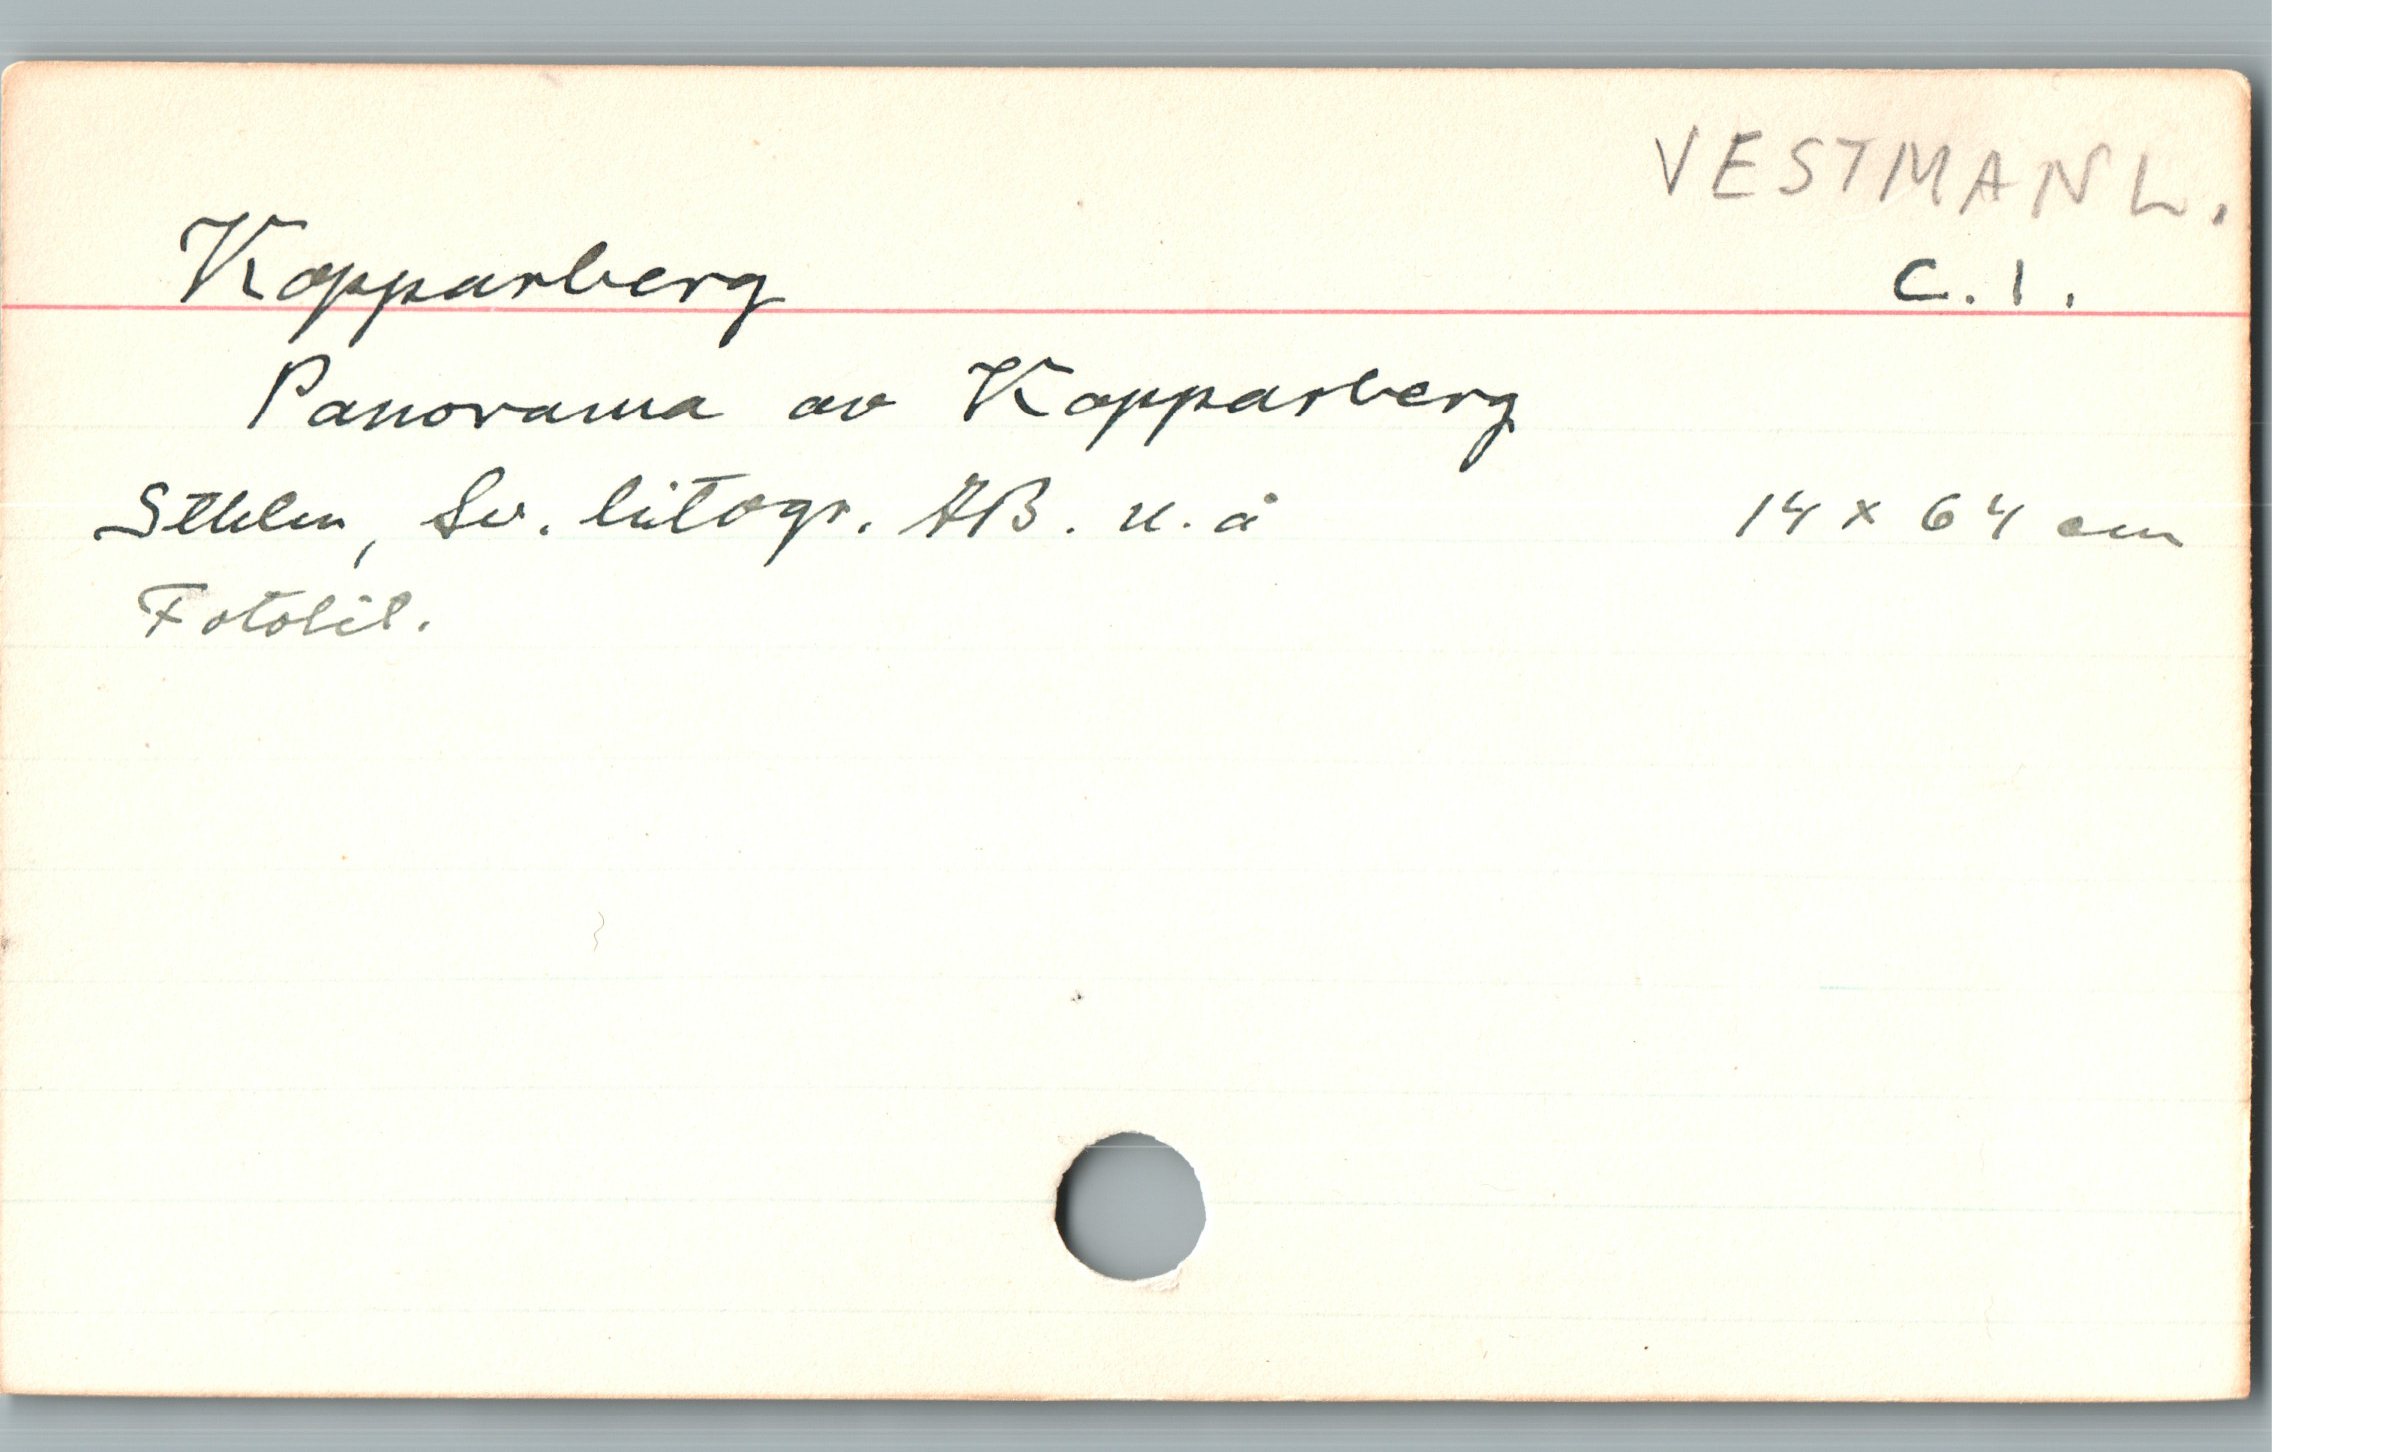 VESTMANL.
Kopparberg C. 1.
Panorama av Kopparberg
Sthlm, Sv. litogr. AB. u. å 14 x 64 cm
Fotolit.